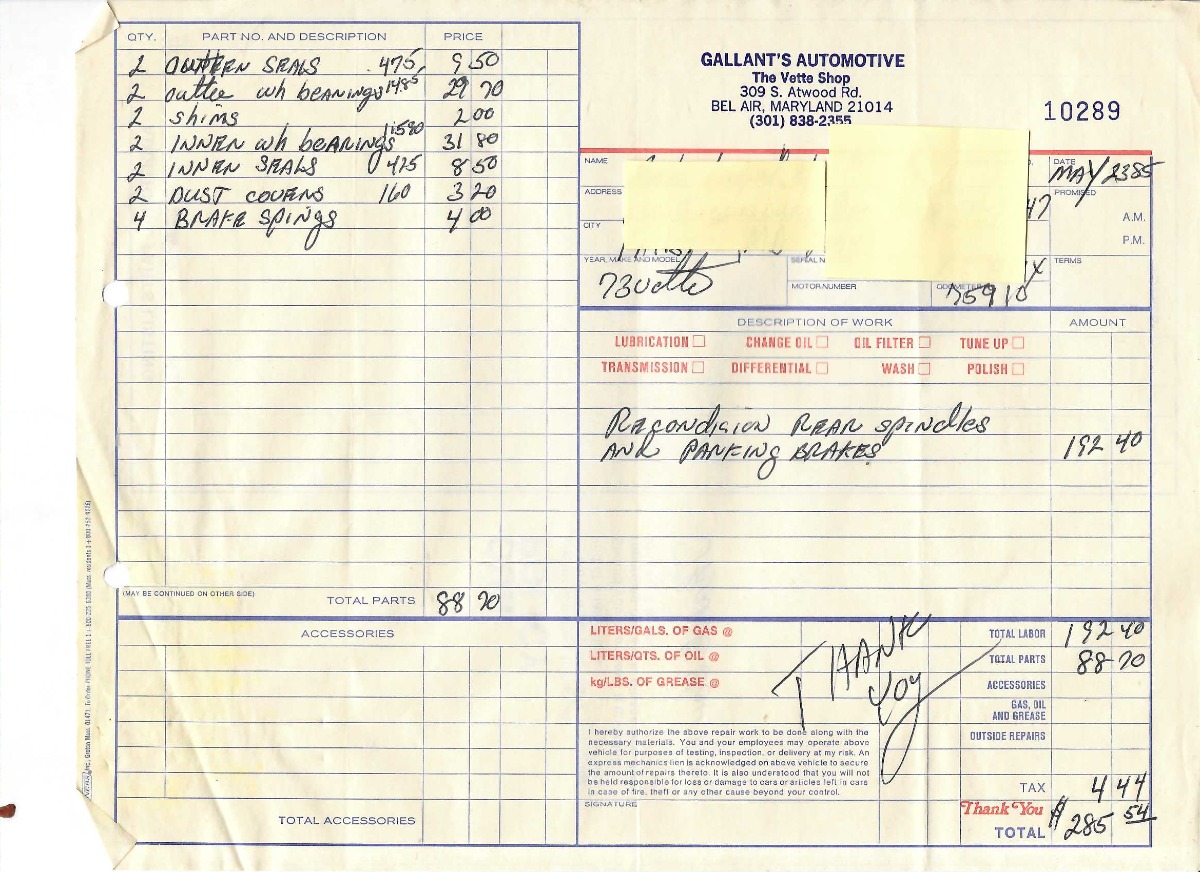 QTY. PART NO. AND DESCRIPTION PRICE
2 OUTTERN SEALS 475 9 50
2 outtee wh beanings 1485 29 70
2 shims 2 00
2 INNEN wh beanings 1590 31 80
2 INNEN SEALS 425 8 50
2 DUST COVENS 160 3 20
4 BRAKE SPINGS 4 00
(MAY BE CONTINUED ON OTHER SIDE) TOTAL PARTS 88 70
ACCESSORIES
TOTAL ACCESSORIES
GALLANT'S AUTOMOTIVE
The Vette Shop
309 S. Atwood Rd.
BEL AIR, MARYLAND 21014
(301) 838-2355
10289
NAME
DATE MAY 2385
ADDRESS
PROMISED
A.M.
CITY
P.M.
YEAR, MAKE AND MODEL 73 vette
SERIAL N
TERMS
MOTOR NUMBER
ODOMETE 75910
DESCRIPTION OF WORK AMOUNT
LUBRICATION CHANGE OIL OIL FILTER TUNE UP
TRANSMISSION DIFFERENTIAL WASH POLISH
RECONDISION REAR SPINDLES
AND PANKING BRAKES 192 40
LITERS/GALS. OF GAS @
LITERS/QTS. OF OIL @
kg/LBS. OF GREASE @
THANK
YOU
TOTAL LABOR 192 40
TOTAL PARTS 88 70
ACCESSORIES
GAS, OIL
AND GREASE
OUTSIDE REPAIRS
I hereby authorize the above repair work to be done along with the
necessary materials. You and your employees may operate above
vehicle for purposes of testing, inspection, or delivery at my risk. An
express mechanics lien is acknowledged on above vehicle to secure
the amount of repairs thereto. It is also understood that you will not
be held responsible for loss or damage to cars or articles left in cars
in case of fire, theft or any other cause beyond your control.
SIGNATURE
TAX 4 44
Thank You
TOTAL $285 54